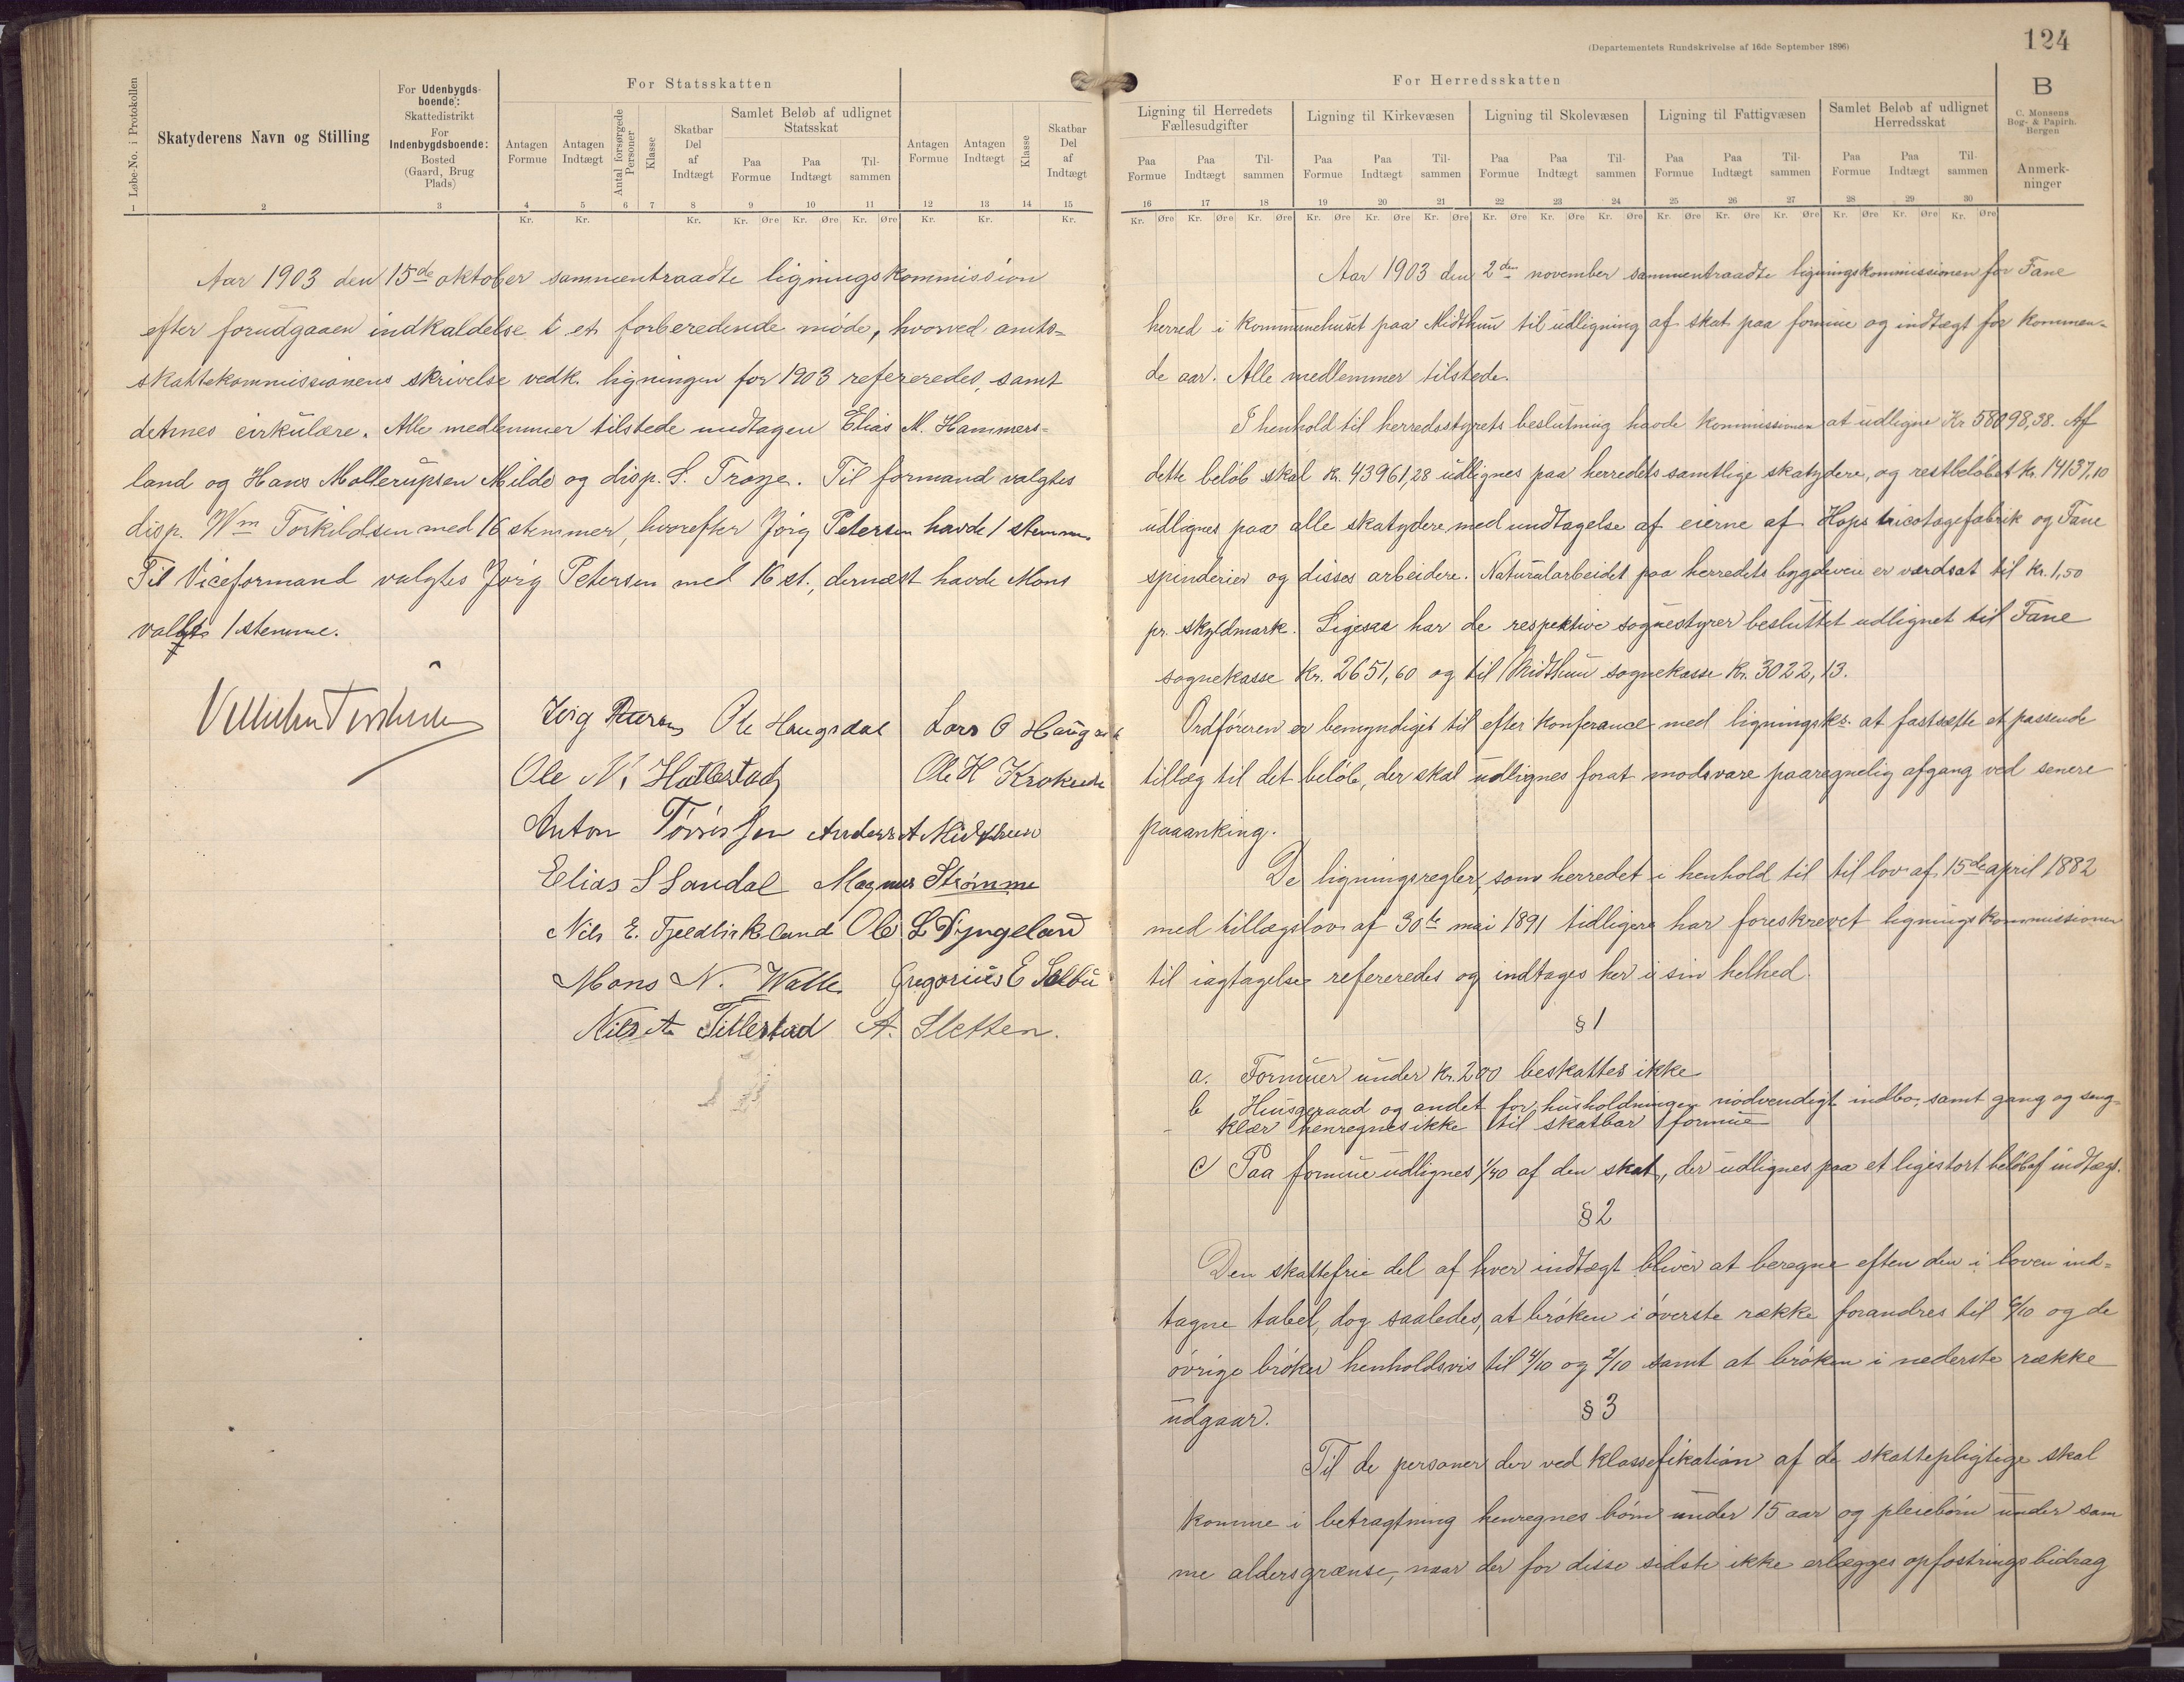 124
(Departementets Rundskrivelse af 16de September 1896)
Løbe-No. i Protokollen
Skatyderens Navn og Stilling
For Udenbygds-
boende:
Skattedistrikt
For
Indenbygdsboende:
Bosted
(Gaard, Brug
Plads)
For Statsskatten
Antagen
Formue
Antagen
Indtægt
Antal forsørgede
Personer
Klasse
Skatbar
Del
af
Indtægt
Samlet Beløb af udlignet
Statsskat
Paa
Formue
Paa
Indtægt
Til-
sammen
Antagen
Formue
Antagen
Indtægt
Klasse
Skatbar
Del
af
Indtægt
1 2 3 4 5 6 7 8 9 10 11 12 13 14 15
Kr. Kr. Kr. Kr. Øre Kr. Øre Kr. Øre Kr. Kr. Kr.
Aar 1903 den 15de oktober sammentraadte ligningskommission
efter forudgaaen indkaldelse t et forberedende møde, hvorved amts-
skattekommissionens skrivelse vedk. ligningen for 1903 refereredes, samt
dennes cirkulære. Alle medlemmer tilstede undtagen Elias M. Hammers-
land og Hans Mollerupsen Milde og disp. S. Troye. Til formand valgtes
disp. Wm Torkildsen med 16 stemmer, hvorefter Jørg Petersen havde 1 stemme
Til Viceformand valgtes Jørg Petersen med 16 st., dernæst havde Mons
valgts 1 stemme.
Jørg Petersen Ole Haugsdal Lars O Haug
Ole N. Hatlestad Ole H Krokeide
Anton Tørrissen Anders A Midthun
Elias S Sandal Magnus Strømme
Nils E. Fjeldbirkeland Ole L Dyngeland
Mons N. Walle Gregorius E Sælbu
Nils A Titlestad A. Sletten.
For Herredsskatten
B
C. Monsens
Bog- & Papirh.
Bergen
Ligning til Herredets
Fællesudgifter
Ligning til Kirkevæsen
Ligning til Skolevæsen
Ligning til Fattigvæsen
Samlet Beløb af udlignet
Herredsskat
Anmerk-
ninger
Paa
Formue
Paa
Indtægt
Til-
sammen
Paa
Formue
Paa
Indtægt
Til-
sammen
Paa
Formue
Paa
Indtægt
Til-
sammen
Paa
Formue
Paa
Indtægt
Til-
sammen
Paa
Formue
Paa
Indtægt
Til-
sammen
16 17 18 19 20 21 22 23 24 25 26 27 28 29 30
Kr. Øre Kr. Øre Kr. Øre Kr. Øre Kr. Øre Kr. Øre Kr. Øre Kr. Øre Kr. Øre Kr. Øre Kr. Øre Kr. Øre Kr. Øre Kr. Øre Kr. Øre
Aar 1903 den 2den november sammentraadte ligningskommissionen for Fane
herred i kommunehuset paa Midthun til udligning af skat paa formue og indtægt for kommen-
de aar. Alle medlemmer tilstede.
I henhold til herredsstyrets beslutning havde kommissionen at udligne Kr 58098,38. Af
dette beløb skal kr. 43961,28 udlignes paa herredets samtlige skatydere, og restbeløbet kr. 14137,10
udlignes paa alle skatydere med undtagelse af eierne af Hops tricotagefabrik og Fane
spinderier og disses arbeidere. Naturalarbeidet paa herredets bygdeveie er værdsat til kr. 1,50
pr. skyldmark. Ligesaa har de respektive sognestyrer besluttet udlignet til Fane
sognekasse kr. 2651,60 og til Midthun sognekasse kr. 3022,13.
Ordføreren er bemyndiget til efter konferance med ligningsks. at fastsætte et passende
tillæg til det beløb, der skal udlignes forat modsvare paaregnelig afgang ved senere
paaanking.
De ligningsregler, som herredet i henhold til til lov af 15de april 1882
med tillægslov af 30te mai 1891 tidligere har foreskrevet ligningskommissionen
til iagtagelse refereredes og indtages her i sin helhed.
§ 1
a. Formuer under kr. 200 beskattes ikke
b Husgeraad og andet for husholdningen nødvendigt indbo, samt gang og seng-
klær henregnes ikke til skatbar formue
c Paa formue udlignes 1/40 af den skat, der udlignes paa et ligestort beløb af indtægt.
§ 2
Den skattefrie del af hver indtægt bliver at beregne efter den i loven ind-
tagne tabel, dog saaledes, at brøken i øverste række forandres til 6/10 og de
øvrige brøker henholdsvis til 4/10 og 2/10 samt at brøken i nederste række
udgaar.
§ 3
Til de personer der ved klassefikation af de skattepligtige skal
komme i betragtning henregnes børn under 15 aar og pleiebørn under sam
me aldersgrænse, naar der for disse sidste ikke erlægges opfostringsbidrag